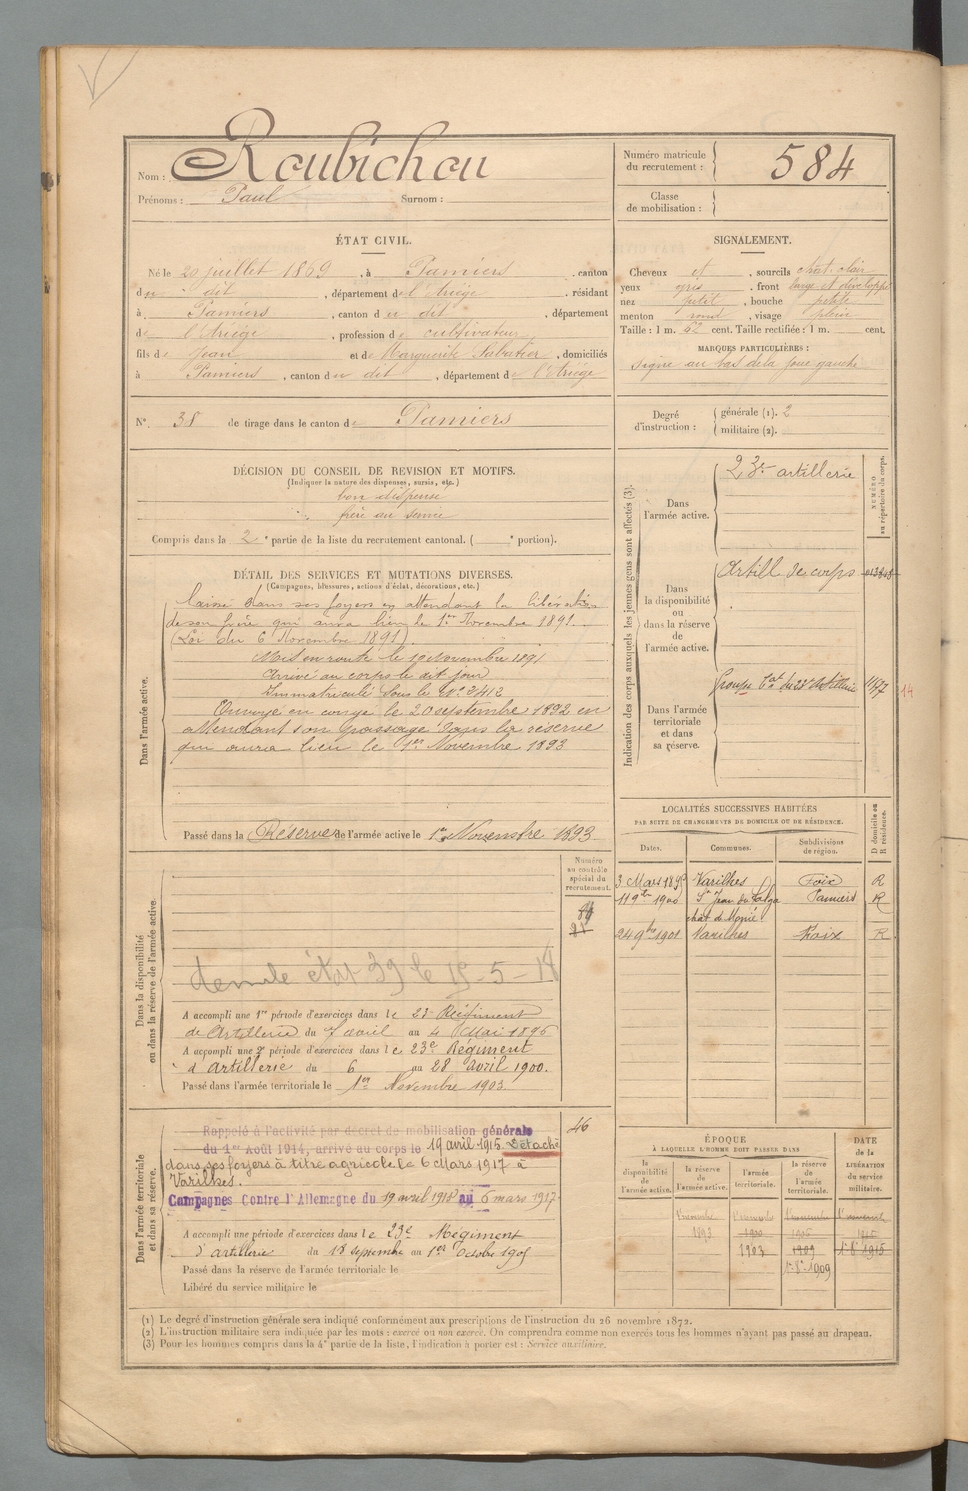 Nom : Roubichou
Prénoms : Paul Surnom :
Numéro matricule du recrutement : 584
Classe de mobilisation :
ÉTAT CIVIL.
Né le 20 juillet 1869, à Pamiers, canton
du dit, département de l'Ariège, résidant
à Pamiers, canton du dit, département
de l'Ariège, profession de cultivateur
fils de Jean et de Marguerite Sabatier, domiciliés
à Pamiers, canton du dit, département de l'Ariège
SIGNALEMENT.
Cheveux et, sourcils chat. clair
yeux gris, front large et développé
nez petit, bouche petite
menton rond, visage plein
Taille : 1 m. 62 cent. Taille rectifiée : 1 m. cent.
MARQUES PARTICULIÈRES :
signe au bas de la joue gauche
N° 38 de tirage dans le canton de Pamiers
Degré d'instruction : générale (1). 2
militaire (2).
DÉCISION DU CONSEIL DE REVISION ET MOTIFS.
(Indiquer la nature des dispenses, sursis, etc.)
bon dispensé
frère au service
Compris dans la 2e partie de la liste du recrutement cantonal. ( e portion).
DÉTAIL DES SERVICES ET MUTATIONS DIVERSES.
(Campagnes, blessures, actions d'éclat, décorations, etc.)
Dans l'armée active.
laissé dans ses foyers en attendant la libération
de son frère qui aura lieu le 1er Novembre 1891.
(Loi du 6 Novembre 1891)
Mis en route le 19 Novembre 1891
Arrivé au corps le dit jour
Immatriculé sous le N°
Envoyé en congé le 20 septembre 1892 en
attendant son passage dans la réserve
qui aura lieu le 1er Novembre 1893
Passé dans la Réserve de l'armée active le 1er Novembre 1893
Indication des corps auxquels les jeunes gens sont affectés (3).
NUMÉRO au répertoire du corps.
Dans l'armée active.
23e artillerie
Dans la disponibilité ou dans la réserve de l'armée active.
Artill de corps
Dans l'armée territoriale et dans sa réserve.
Groupe du 23e Artillerie 1147 14
LOCALITÉS SUCCESSIVES HABITÉES
PAR SUITE DE CHANGEMENTS DE DOMICILE OU DE RÉSIDENCE.
D domicile ou R résidence.
Dates. Communes. Subdivisions de région.
3 Mars Varilhes Foix R
11 9bre 1900 St Jean du Falga Pamiers R
24 9bre 1901 Varilhes Foix R
Dans la disponibilité ou dans la réserve de l'armée active.
Numéro au contrôle spécial du recrutement.
A accompli une 1re période d'exercices dans le 23e Régiment
de Artillerie du 7 avril au 4 Mai 1896
A accompli une 2e période d'exercices dans le 23e Régiment
d'artillerie du 6 au 28 avril 1900.
Passé dans l'armée territoriale le 1er Novembre 1903.
Dans l'armée territoriale et dans sa réserve.
46
Rappelé à l'activité par décret de mobilisation générale
du 1er Août 1914, arrivé au corps le 19 avril 1915. Détaché
dans ses foyers à titre agricole le 6 Mars 1917 à
Varilhes.
Campagnes Contre l'Allemagne du 19 avril 1915 au 6 mars 1917
A accompli une période d'exercices dans le 23e Régiment
d'artillerie du 18 septembre au 1er Octobre 1905
Passé dans la réserve de l'armée territoriale le
Libéré du service militaire le
ÉPOQUE
À LAQUELLE L'HOMME DOIT PASSER DANS
DATE de la LIBÉRATION du service militaire.
la disponibilité de l'armée active.
la réserve de l'armée active.
l'armée territoriale.
la réserve de l'armée territoriale.
1 novembre 1893
1903
1909
1909
(1) Le degré d'instruction générale sera indiqué conformément aux prescriptions de l'instruction du 26 novembre 1872.
(2) L'instruction militaire sera indiquée par les mots : exercé ou non exercé. On comprendra comme non exercés tous les hommes n'ayant pas passé au drapeau.
(3) Pour les hommes compris dans la 4e partie de la liste, l'indication à porter est : Service auxiliaire.